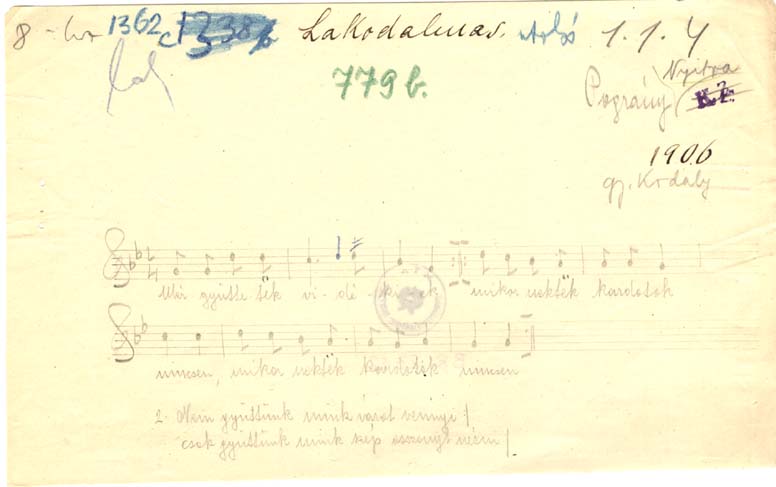 8 1362 Lakodalmas. utolsó 1. 1. 4
779 b.
Pográny Nyitra
K.Z.
1906
gy. Kodály
Mér gyütte tëk vi - dé mikor nektëk kardotok
nincsen, mikor nektëk kardotok nincsen
2. Nem gyüttünk mink várat vennyi /
csak gyüttünk mink kép asszonyt nézni /